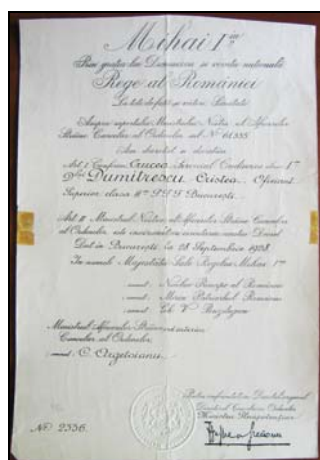 Mihai I
Prin grația lui Dumnezeu și voința națională
Rege al României
La toți de față și viitori Sănătate
Asupra raportului Ministrului Nostru al Afacerilor
Străine Cancelar al Ordinelor cu No 61355
Am decretat și decretăm
Art. I Conferim Crucea Serviciul Credincios clasa I
Dlui Dumitrescu Cristea, Oficiant
Superior clasa II P.T.T. București.
Art. II Ministrul Nostru al Afacerilor Străine Cancelar
al Ordinelor, este însărcinat cu executarea acestui Decret
Dat în București la 28 Septembrie 1928.
În numele Majestății Sale Regelui Mihai I
Nicolae Principe al României
Miron Patriarhul României
Gh. V. Buzdugan
Ministrul Afacerilor Străine ad interim
Cancelar al Ordinelor,
C. Argetoianu
Pentru conformitate
Directorul Cancelariei Ordinelor
Ministru Plenipotențiar
No 2336.